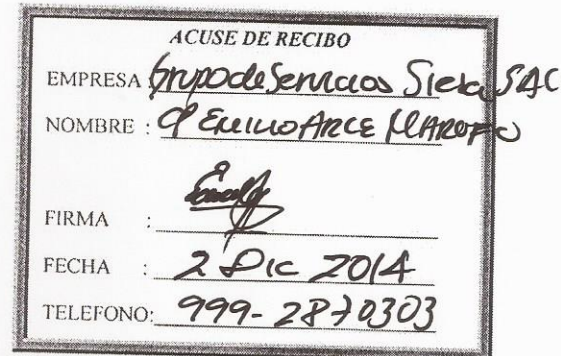 ACUSE DE RECIBO
EMPRESA Grupo de Servicios SAC
NOMBRE : EMILIO ARCE
FIRMA :
FECHA : 2 Dic 2014
TELEFONO: 999-2870303